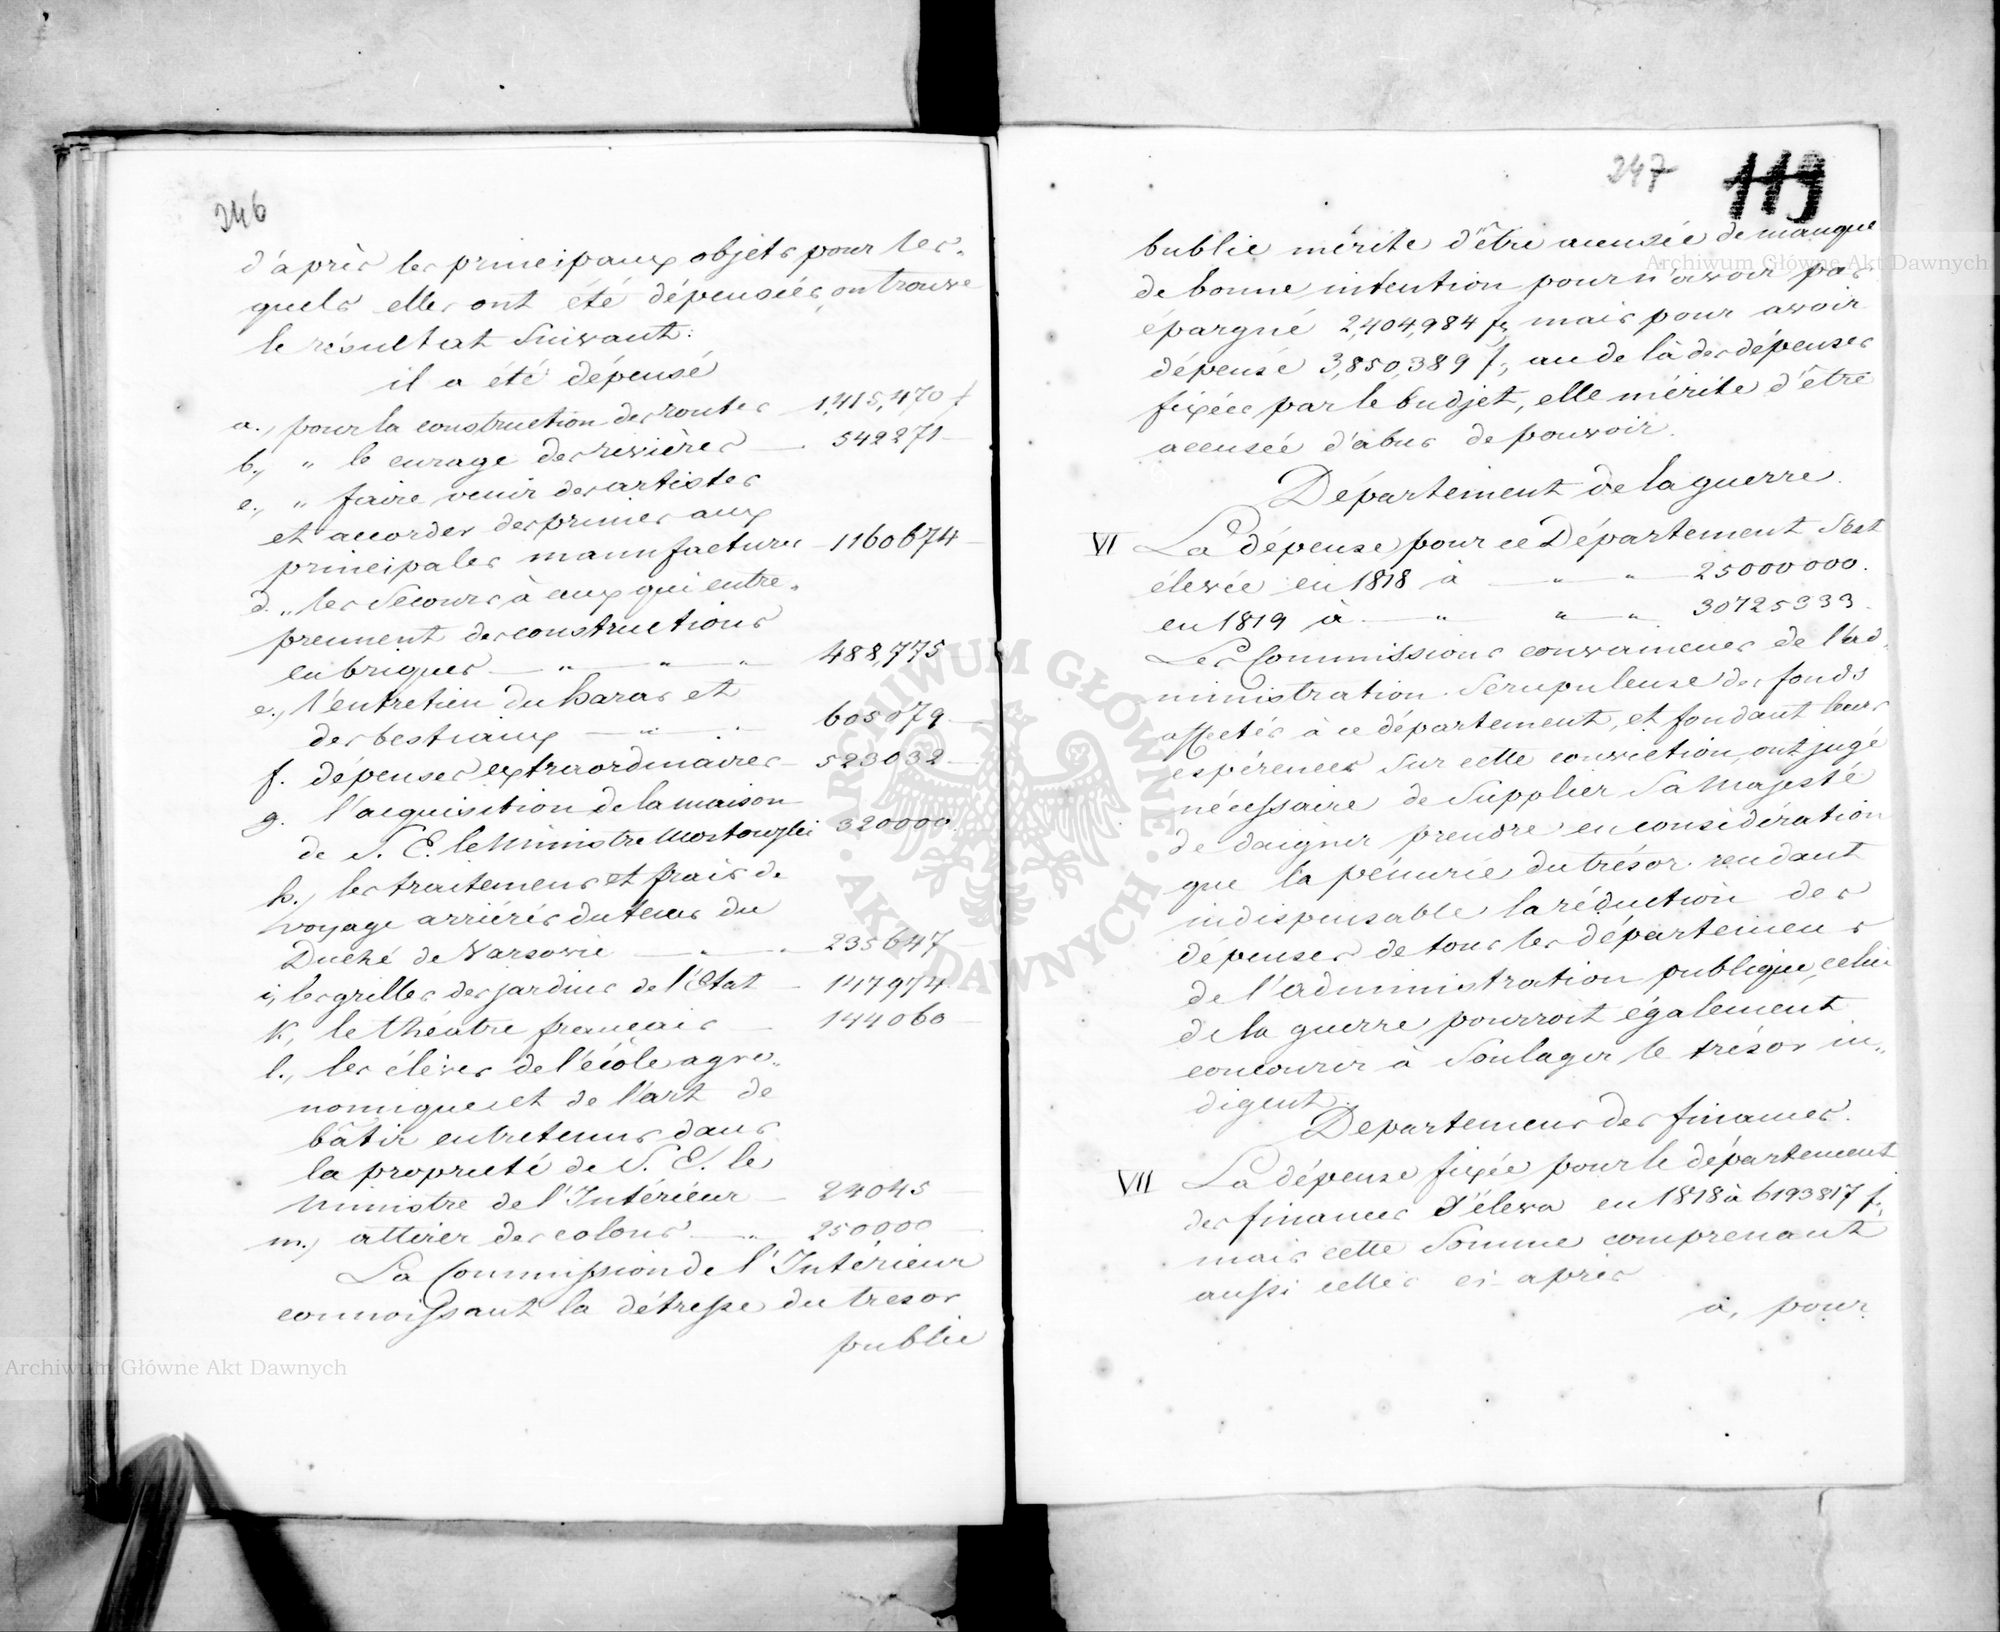 246
d'après les principaux objets pour les-
quels elles ont été dépensées, on trouve
le résultat suivant:
il a été dépensé
a., pour la construction des routes 1,415,470 f
b., " le curage des rivières — 542271 —
c., " faire venir des artistes
et accorder des primes aux
principales manufactures — 1160674 —
d. " les secours à ceux qui entre-
prennent des constructions
en briques — " — " — " 488,775
e., l'entretien du haras et
des bestiaux — " — " 605079 —
f. dépenses extraordinaires — 523032 —
g. l'acquisition de la maison
de S. E. le Ministre Mostowski 320000
h., les traitemens et frais de
voyage arriérés du tems du
Duché de Varsovie — " — " 235647 —
i, les grilles des jardins de l'Etat — 147974
k, le théâtre français — 144060 —
l., les élèves de l'école agro-
nomique et de l'art de
bâtir entretenus dans
la propriété de S. E. le
Ministre de l'Intérieur — 24045 —
m., attirer des colons — " 250000 —
La Commission de l'Intérieur
connoissant la détresse du tresor
public
247 119
public mérite d'être accusée de manque
de bonne intention pour n'avoir pas
épargné 2,404,984 f, mais pour avoir
dépensé 3,850,389 f, au de là des dépenses
fixées par le budjet, elle mérite d'être
accusée d'abus de pouvoir.
Département de la guerre.
VI La dépense pour ce Département s'est
élevée en 1818 à — " — " — 25000000.
en 1819 à — " — " — " 30725333.
Les Commissions convaincues de l'ad-
ministration scrupuleuse des fonds
affectés à ce département, et fondant leurs
espérences sur cette conviction, ont jugé
nécessaire de supplier Sa Majesté
de daigner prendre en considération
que la pénurie du trésor rendant
indispensable la réduction des
dépenses de tous les départemens
de l'administration publique, celui
de la guerre pourroit également
concourir à soulager le trésor in-
digent.
Departemens des finances.
VII La dépense fixée pour le département
des finances s'éleva en 1818 à 6193817 f,
mais cette somme comprenant
aussi celles ci-après
a, pour
Archiwum Główne Akt Dawnych
Archiwum Główne Akt Dawnych
ARCHIWUM GŁÓWNE · AKT DAWNYCH ·